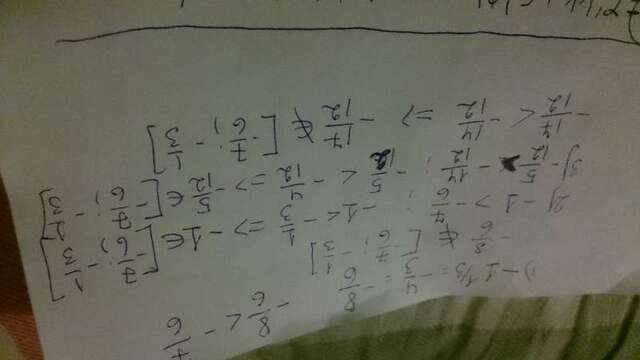 -8/6 < -7/6
1) -1 1/3 = -4/3 = -8/6
-8/6 ∉ [-7/6; -1/3]
2) -1 > -7/6; -1 < -1/3 => -1 ∈ [-7/6; -1/3]
3) -5/12 > -14/12; -5/12 < -4/12 => -5/12 ∈ [-7/6; -1/3]
-17/12 < -14/12 => -17/12 ∉ [-7/6; -1/3]